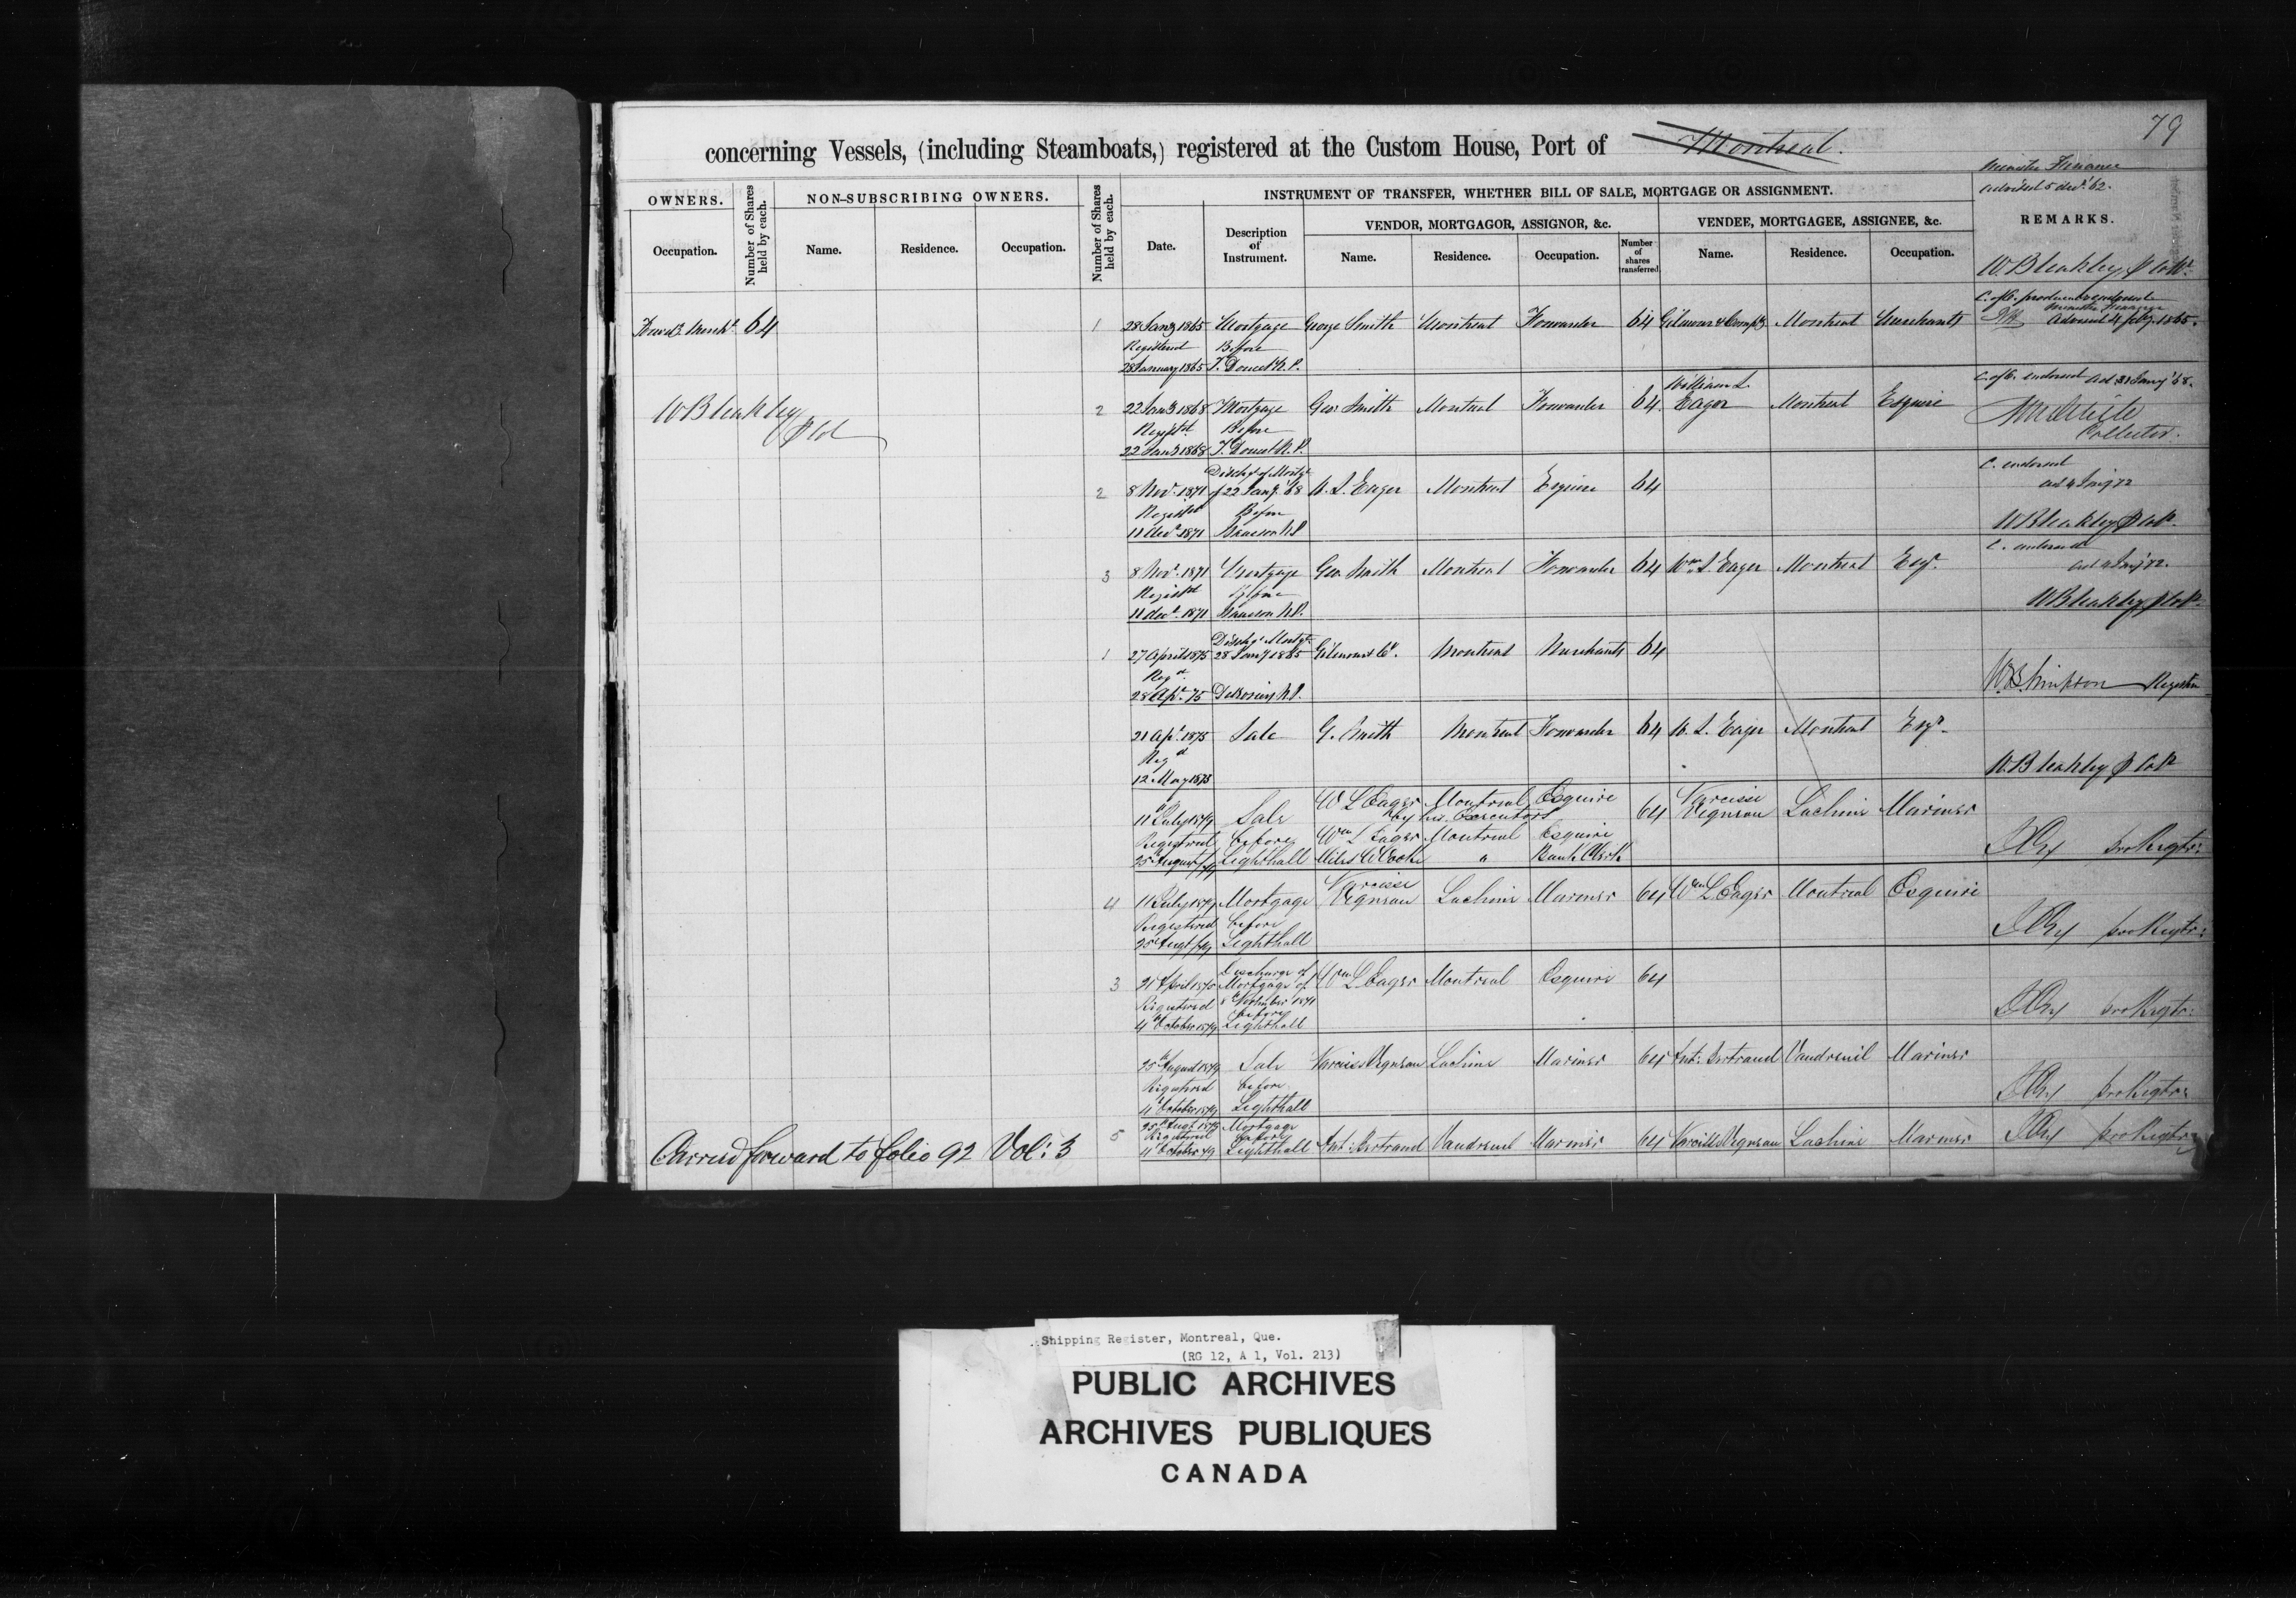 79
concerning Vessels, (including Steamboats,) registered at the Custom House, Port of Montreal.
Minister Finance
advised 5 decr '62.
OWNERS.
Number of Shares held by each.
NON-SUBSCRIBING OWNERS.
Number of Shares held by each.
INSTRUMENT OF TRANSFER, WHETHER BILL OF SALE, MORTGAGE OR ASSIGNMENT.
REMARKS.
VENDOR, MORTGAGOR, ASSIGNOR, &c.
VENDEE, MORTGAGEE, ASSIGNEE, &c.
Occupation.
Name.
Residence.
Occupation.
Date.
Description of Instrument.
Name.
Residence.
Occupation.
Number of shares transferred
Name.
Residence.
Occupation.
W Bleakley
64
1 28 Jany 1865 Mortgage George Smith Montreal Forwarder 64 Gilmour & Compy Montreal Merchants
Minister Finance
Advised 4 feby. 1865.
Registered Before
28 January 1865 T. Doucet N.P.
W Bleakley
2 22 Jany 1868 Mortgage Geo. Smith Montreal Forwarder 64 William L. Eager Montreal Esquire
C. of O. endorsed
Collector.
Registd Before
22 Jany 1868 T. Doucet N.P.
2 8 Novr 1871 Dischge of Mortge of 22 Jany '68 W. L. Eager Montreal Esquire 64
C. endorsed
Registd Before
11 decr 1871 N.P.
W Bleakley
3 8 Novr 1871 Mortgage Geo Smith Montreal Forwarder 64 Wm L. Eager Montreal Esqr
C. endorsed
Registd Before
11 decr 1871 N.P.
W Bleakley
1 27 April 1875 Dischge Mortge 28 Jany 1865 Gilmour & Co. Montreal Merchants 64
Regd
28 Apl 75 N.P.
W.B. Simpson Registrar
21 Apl 1875 Sale G. Smith Montreal Forwarder 64 W. L. Eager Montreal Esqr
Regd
12 May 1875
W. Bleakley
11th July 1879 Sale W L Eager Montreal Esquire 64 Narcisse Vegneau Lachine Mariner
by his Executors
Registered before Wm L Eager Montreal Esquire
25th August /79 Lighthall Miles W Cooke " Bank Clerk
pro Regtr:
4 11 July 1879 Mortgage Narcisse Vegneau Lachine Mariner 64 Wm L Eager Montreal Esquire
Registered before
25 Augt /79 Lighthall
pro Regtr:
3 21 April 1875 Discharge of Mortgage of 8th November 1871 Wm L Eager Montreal Esquire 64
Registered before
4th October 1879 Lighthall
pro Regtr:
25th August 1879 Sale Narcisse Vegneau Lachine Mariner 64 Ant: Bertrand Vaudreuil Mariner
Registered before
4th October 1879 Lighthall
pro Regtr:
5 25th Augt 1879 Mortgage
Registered before
4th October 79 Lighthall Ant: Bertrand Vaudreuil Mariner 64 Narcisse Vegneau Lachine Mariner pro Regtr:
Carried forward to folio 92 Vol: 3
Shipping Register, Montreal, Que.
(RG 12, A 1, Vol. 213)
PUBLIC ARCHIVES
ARCHIVES PUBLIQUES
CANADA